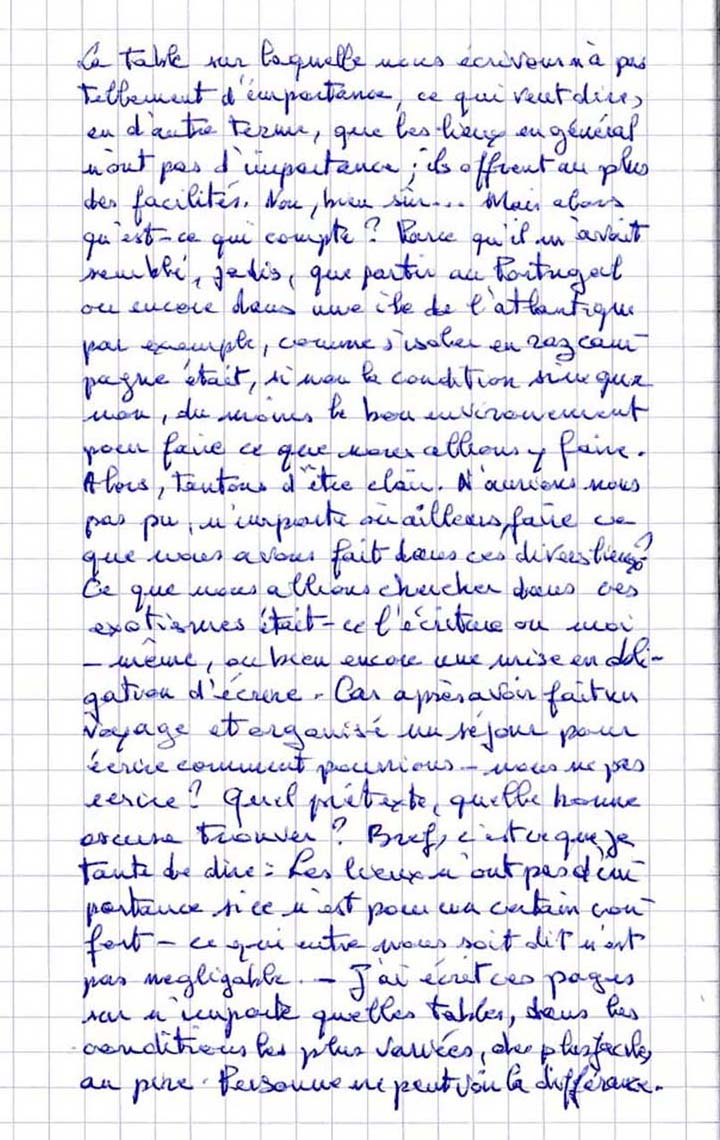 La table sur laquelle nous écrivons n'a pas
tellement d'importance, ce qui veut dire,
en d'autre terme, que les lieux en général
n'ont pas d'importance ; ils offrent au plus
des facilités. Non, bien sûr... Mais alors
qu'est-ce qui compte ? Parce qu'il m'avait
semblé, jadis, que partir au Portugal
ou encore dans une île de l'atlantique
par exemple, comme s'isoler en raz cam-
pagne était, si non la condition sine qua
non, du moins le bon environnement
pour faire ce que nous allions y faire.
Alors, tentons d'être clair. N'aurions nous
pas pu, n'importe où ailleurs, faire ce
que nous avons fait dans ces divers lieux ?
Ce que nous allions chercher dans ces
exotismes était-ce l'écriture ou moi
- même, ou bien encore une mise en obli-
gation d'écrire. Car après avoir fait un
voyage et organisé un séjour pour
écrire comment pourrions - nous ne pas
écrire ? Quel prétexte, quelle bonne
excuse trouver ? Bref, c'est ce que je
tente de dire : Les lieux n'ont pas d'im-
portance si ce n'est pour un certain con-
fort - ce qui entre nous soit dit n'est
pas negligable. - J'ai écrit ces pages
sur n'importe quelles tables, dans les
conditions les plus variées, des plus faciles,
au pire. Personne ne peut voir la différence.